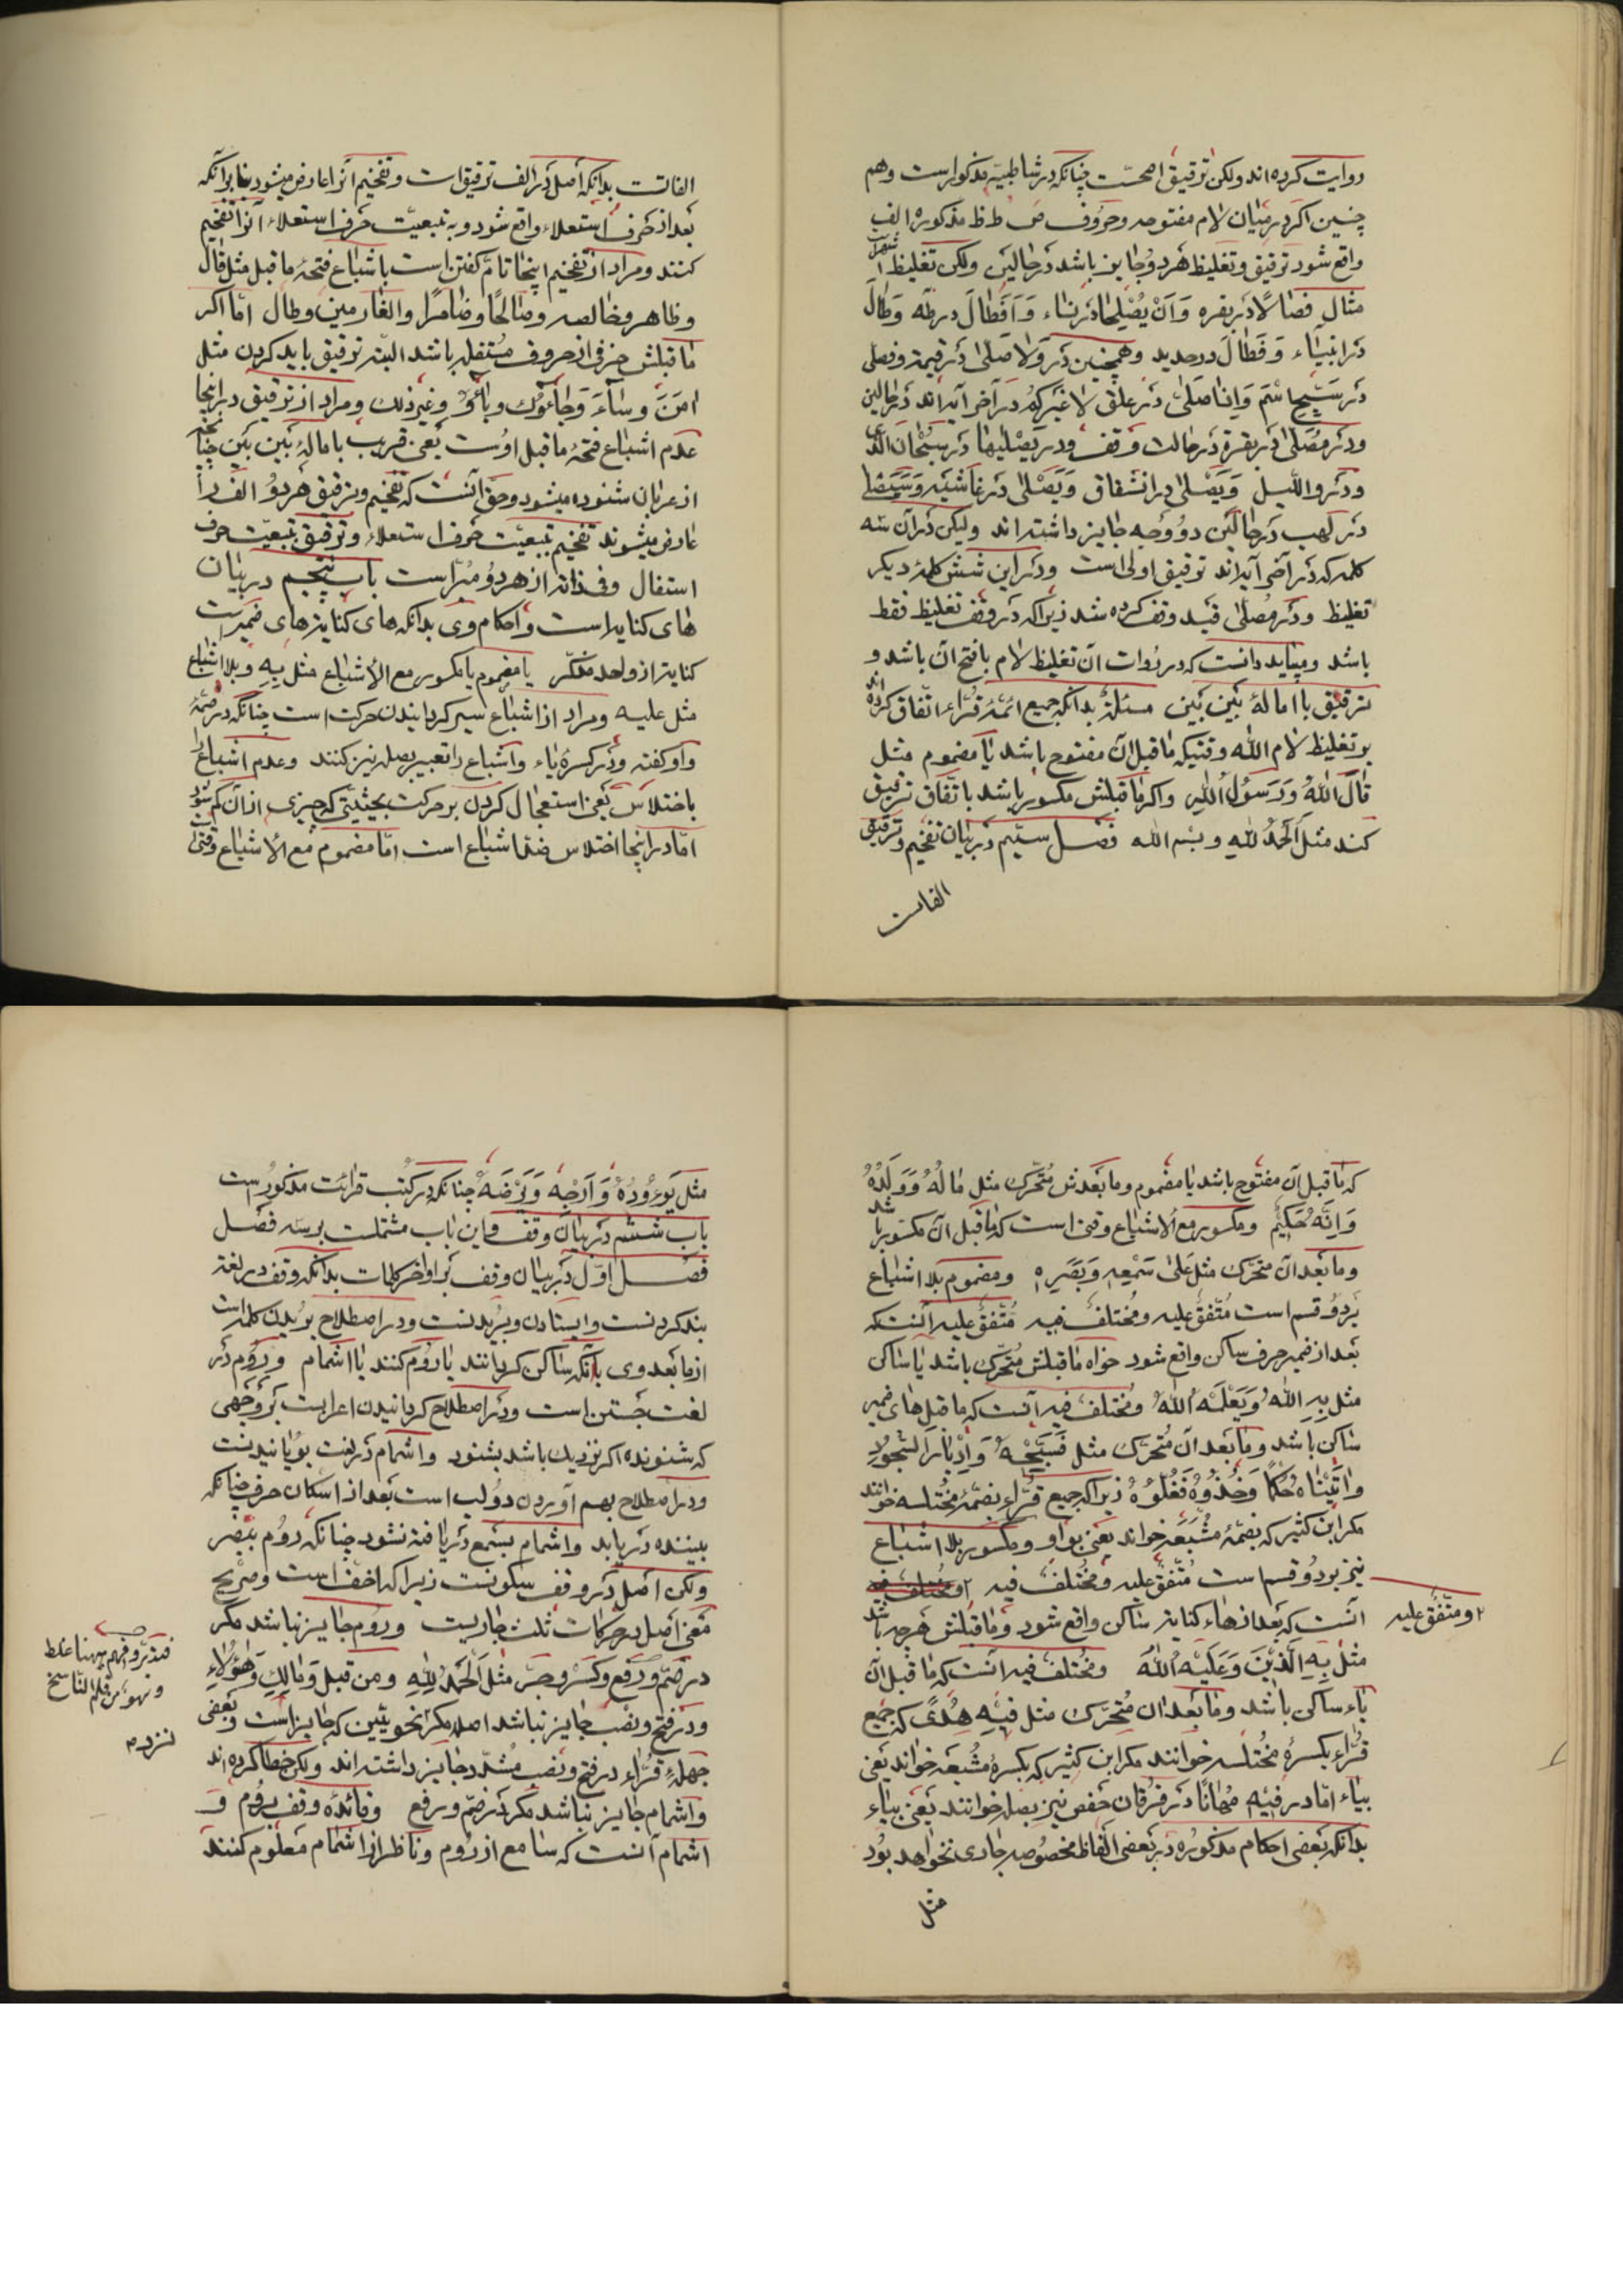 روایت کرده‌اند ولکن ترقیق اصحّست چنانکه در شاطبیّه مذکوراست وهم
چنین اکر در میٰان لام مفتوحه وحروف ص ط ظ مذکوره الف
واقع شود ترقیق وتغلیظ هَردو جٰایز باشد دَرحٰالَین ولکن تغلیظ اشهراست
مثال فصٰالًا دَر بقره وَاَنْ یُصْٰلِحٰا دَر نسٰاء وَاَفَطٰالَ در طٰه وَطٰالَ
دَر انبیٰاء وَفَطٰالَ در حدید وهمچنین دَر وَلٰا صَلّٰی دَر قیمة وفصلّی
دَر سَبّحِ اسْمَ وَاِذٰا صَلّٰی دَر علق لا غَیر که در آخر آیه‌اند دَرحٰالین
ودَر مُصَلّٰی دَر بقره دَر حٰالت وَقف ودر یَصْلٰیهٰا دَر سُبْحٰانَ الّذی
ودَر واللَّیل وَیَصْلٰی در انشقاق وَتَصْلٰی دَر غٰاشیَه وَسَیَصْلٰی
دَر لَهب دَر حٰالَین دوُ وَجه جٰایز داشته‌اند ولیکن دَر آن سه
کلمه که دَر آخر آیه‌اند ترقیق اولی است ودَر این شَش کلمهٔ دیکر
تغلیظ ودَر مُصَلّٰی قَید وقف کرده شد زیراکه دَر وَقف تغلیظ فقط
باشد ومیباید دانست که در رَوات آن تغلیظ لام با فتح آن باشد و
ترقیق با امالهٔ بَیَن بَیَن مسئلةٌ بدانکه جمیع ائمّهٔ قُرّاء اتّفاق کرده‌اند
بر تغلیظ لام الله وقتیکه ماقبل آن مفتوح باشد یٰا مضموم مثل
قٰالَ اللهُ وَرَسُولُ اللهِ واکر مٰاقبلش مکسور باشد باتّفاق ترقیق
کنند مثل اَلْحَمْدُ لِلّٰهِ وبسْم الله فصْل سیّم دَر بیٰان تفخیم وترقیق
الفاست
الفاتست بدانکه اَصل دَر الف ترقیق است وتفخیم آنرا عارض میشود بنابرآنکه
بَعد از حَرف استعلاء واقع شود وبه تبعیّت حَرف استعلاء آنرا تفخیم
کنند ومراد از تفخیم اینجٰا تامّ کفتن است باشبٰاع فتحهٔ ماقبل مثل قٰالَ
وظاهر وخٰالصه وصٰالحًا وضٰامرًا والغٰارمین وطٰال امّا اکر
مٰاقبلش حَرفی از حروف مُستفله باشد البتّه ترقیق باید کردن مثل
امَنَ وسٰآءَ وَجٰاءُوكَ وبٰاءُوُ وغیر ذلك ومراد از ترقیق در اینجا
عدم اشبٰاع فتحهٔ ماقبل اوُست یَعنی قریب بامالهٔ بَین بَین چنانچه
از عربان شنوده میشود وحقّ آنست که تفخیم وترقیق هَردوُ الف را
عٰارض میشوند تفخیم بتبعیّت حَرف استعلاء وترقیق بتبعیّت حرف
استفال وفی ذاته از هردوُ مُبرّاست باب پنجم در بیٰان
هٰای کنایه است واحکام وی بدانکه های کنایه هٰای ضمیرست
کنایه از واحد مذکّر یا مضموم یا مکسور مع الاشبٰاع مثل بِهِ وبلا اشباع
مثل علیه ومراد از اشباع سیر کردانیدن حرکت است چنانکه دَر ضمّه
واو کفته ودَر کسره یٰاء واشباع را تعبیر بصله نیز کنند وعدم اشباع را
باختلاس یَعنی استعجٰال کردن بر حرکت بحیثیّتی که چیزی از آن کم شود
امّا در اینجا اختلاس ضدّ اشبٰاع است امّا مضموم مَع الاشبٰاع وقتی
که مٰاقبل آن مفتوح باشد یٰا مضموم ومٰابَعدش مُتحّرك مثل مٰالُهُ وَوَلَدُهُ
وَاِنَّهُ حَکیٖمٌ ومکسور مع الاشبٰاع وقتی است که مٰاقبل آن مکسور باشد
ومٰابَعد آن متحَرّك مثل عَلٰی سَمْعِهِ وَبَصَرِهِ ومضموم بلا اشبٰاع
بَر دوُ قسم است مُتّفقٌ علیه ومُختلفٌ فیه مُتّفقٌ علیه آنست که
بَعد از ضمیر حرف ساکن واقع شود خواه مٰاقبلش مُتحّرك باشد یٰا ساکن
مثل بِهِ اللهُ وَیَعْلَمْهُ اللهُ ومُختلف فیه آنست که ماقبل هٰای ضمیر
سٰاکن باشد ومٰابَعد آن مُتحّرك مثل فَسَبِّحْهُ وَاَدْبٰارَ السُّجُودِ
وٰاتَیْنٰاهُ حُکْمًا وَخُذُوهُ فَغُلُّوُهُ زیراکه جمیع قُرّاء بضمّهٔ مُختلسه خوانند
مکر ابن کثیر که بضمّهٔ مُشبَعَه خواند یَعنی بواو ومکسور بلا اشبٰاع
نیز بر دوُ قسم است مُتّفقٌ علیه ومُختلفٌ فیه ۲ ومُختلف فیه
۲ ومتّفقٌ علیه
آنست که بَعد از هٰاء کنایه سٰاکن واقع شود ومٰاقبلش هَرچه باشد
مثل بِهِ الَّذیٖنَ وَعَلَیْهِ اللهُ ومُختلفٌ فیه آنست که مٰاقبل آن
یٰاء ساکن باشد ومٰابَعد آن مُتحّرك مثل فیٖهِ هُدًی که جمیع
قُرّاء بکسرهٔ مُختلسه خوانند مکر ابن کثیر که بکسرهٔ مُشبعَه خواند یَعنی
بیٰاء امّا در فیٖهِ مُهٰانًا دَر فُرقان حَفص نیز بصله خوانند یَعنی بیٰاء
بدانکه بَعضی احکام مذکوُره دَر بَعضی الفاظ مخصُوصه جاری نخواهد بُود
مثل
مثل یَوَدُّهُ وَاَرْجِهْ وَیَرْضَهُ چنانکه در کتب قرائت مذکورُست
باب ششم دَر بیٰان وَقف واین باب مشتملست بر سه فصْل
فصْل اوّل دَر بیٰان وقف بَر اواخر کلمات بدانکه وقف در لغة
بند کردنست وایستادن وبُریدنست ودر اصطلاح بُریدن کلمه است
از مٰابَعد وی بآنکه سٰاکن کردانند یٰا رَوُم کنند یٰا اشمام ورَوُم دَر
لغت جُستن است ودَر اصطلاح کردانیدن اعرابست بَر وَجهی
که شنونده اکر نزدیك باشد بشنود واشمام دَر لغت بوُیٰانیدنست
ودر اصطلاح بهم آوردن دوُ لب است بَعد از اسکان حرف چنانکه
بیننده دَریابد واشمام بسَمع دَریٰافته نشود چنانکه رَوُم ببَصَر
ولکن اصْل دَر وقف سکونست زیراکه اخفّ است وصَریح
مَعنی اصل در حرکات ثلث جاریست ورَوُم جٰایز نباشد مکر
در ضَمّ ورَفع وکَسْر وجَرّ مثل اَلْحَمْدُ لِلّٰهِ ومن قبل وَمٰالِكِ وَهٰؤُلاءِ
ودر فتح ونصْب جٰایز نباشد اصلا مکر نحویّین که جٰایز است وبَعضی
جَهلهٔ قُرّاء در فتح ونصْب مُشدّد جٰایز داشته‌اند ولکن خطا کرده‌اند
واشمام جٰایز نباشد مکر دَر ضَمّ ورفع وفائدهٔ وقف برَوُم وَ
اشمام آنست که سٰامع از رَوُم ونٰاظر از اشمام مَعلوم کنند
فتدبّر وافهم ههنا غلط
وسَهو من قلم النّاسخ
نزد